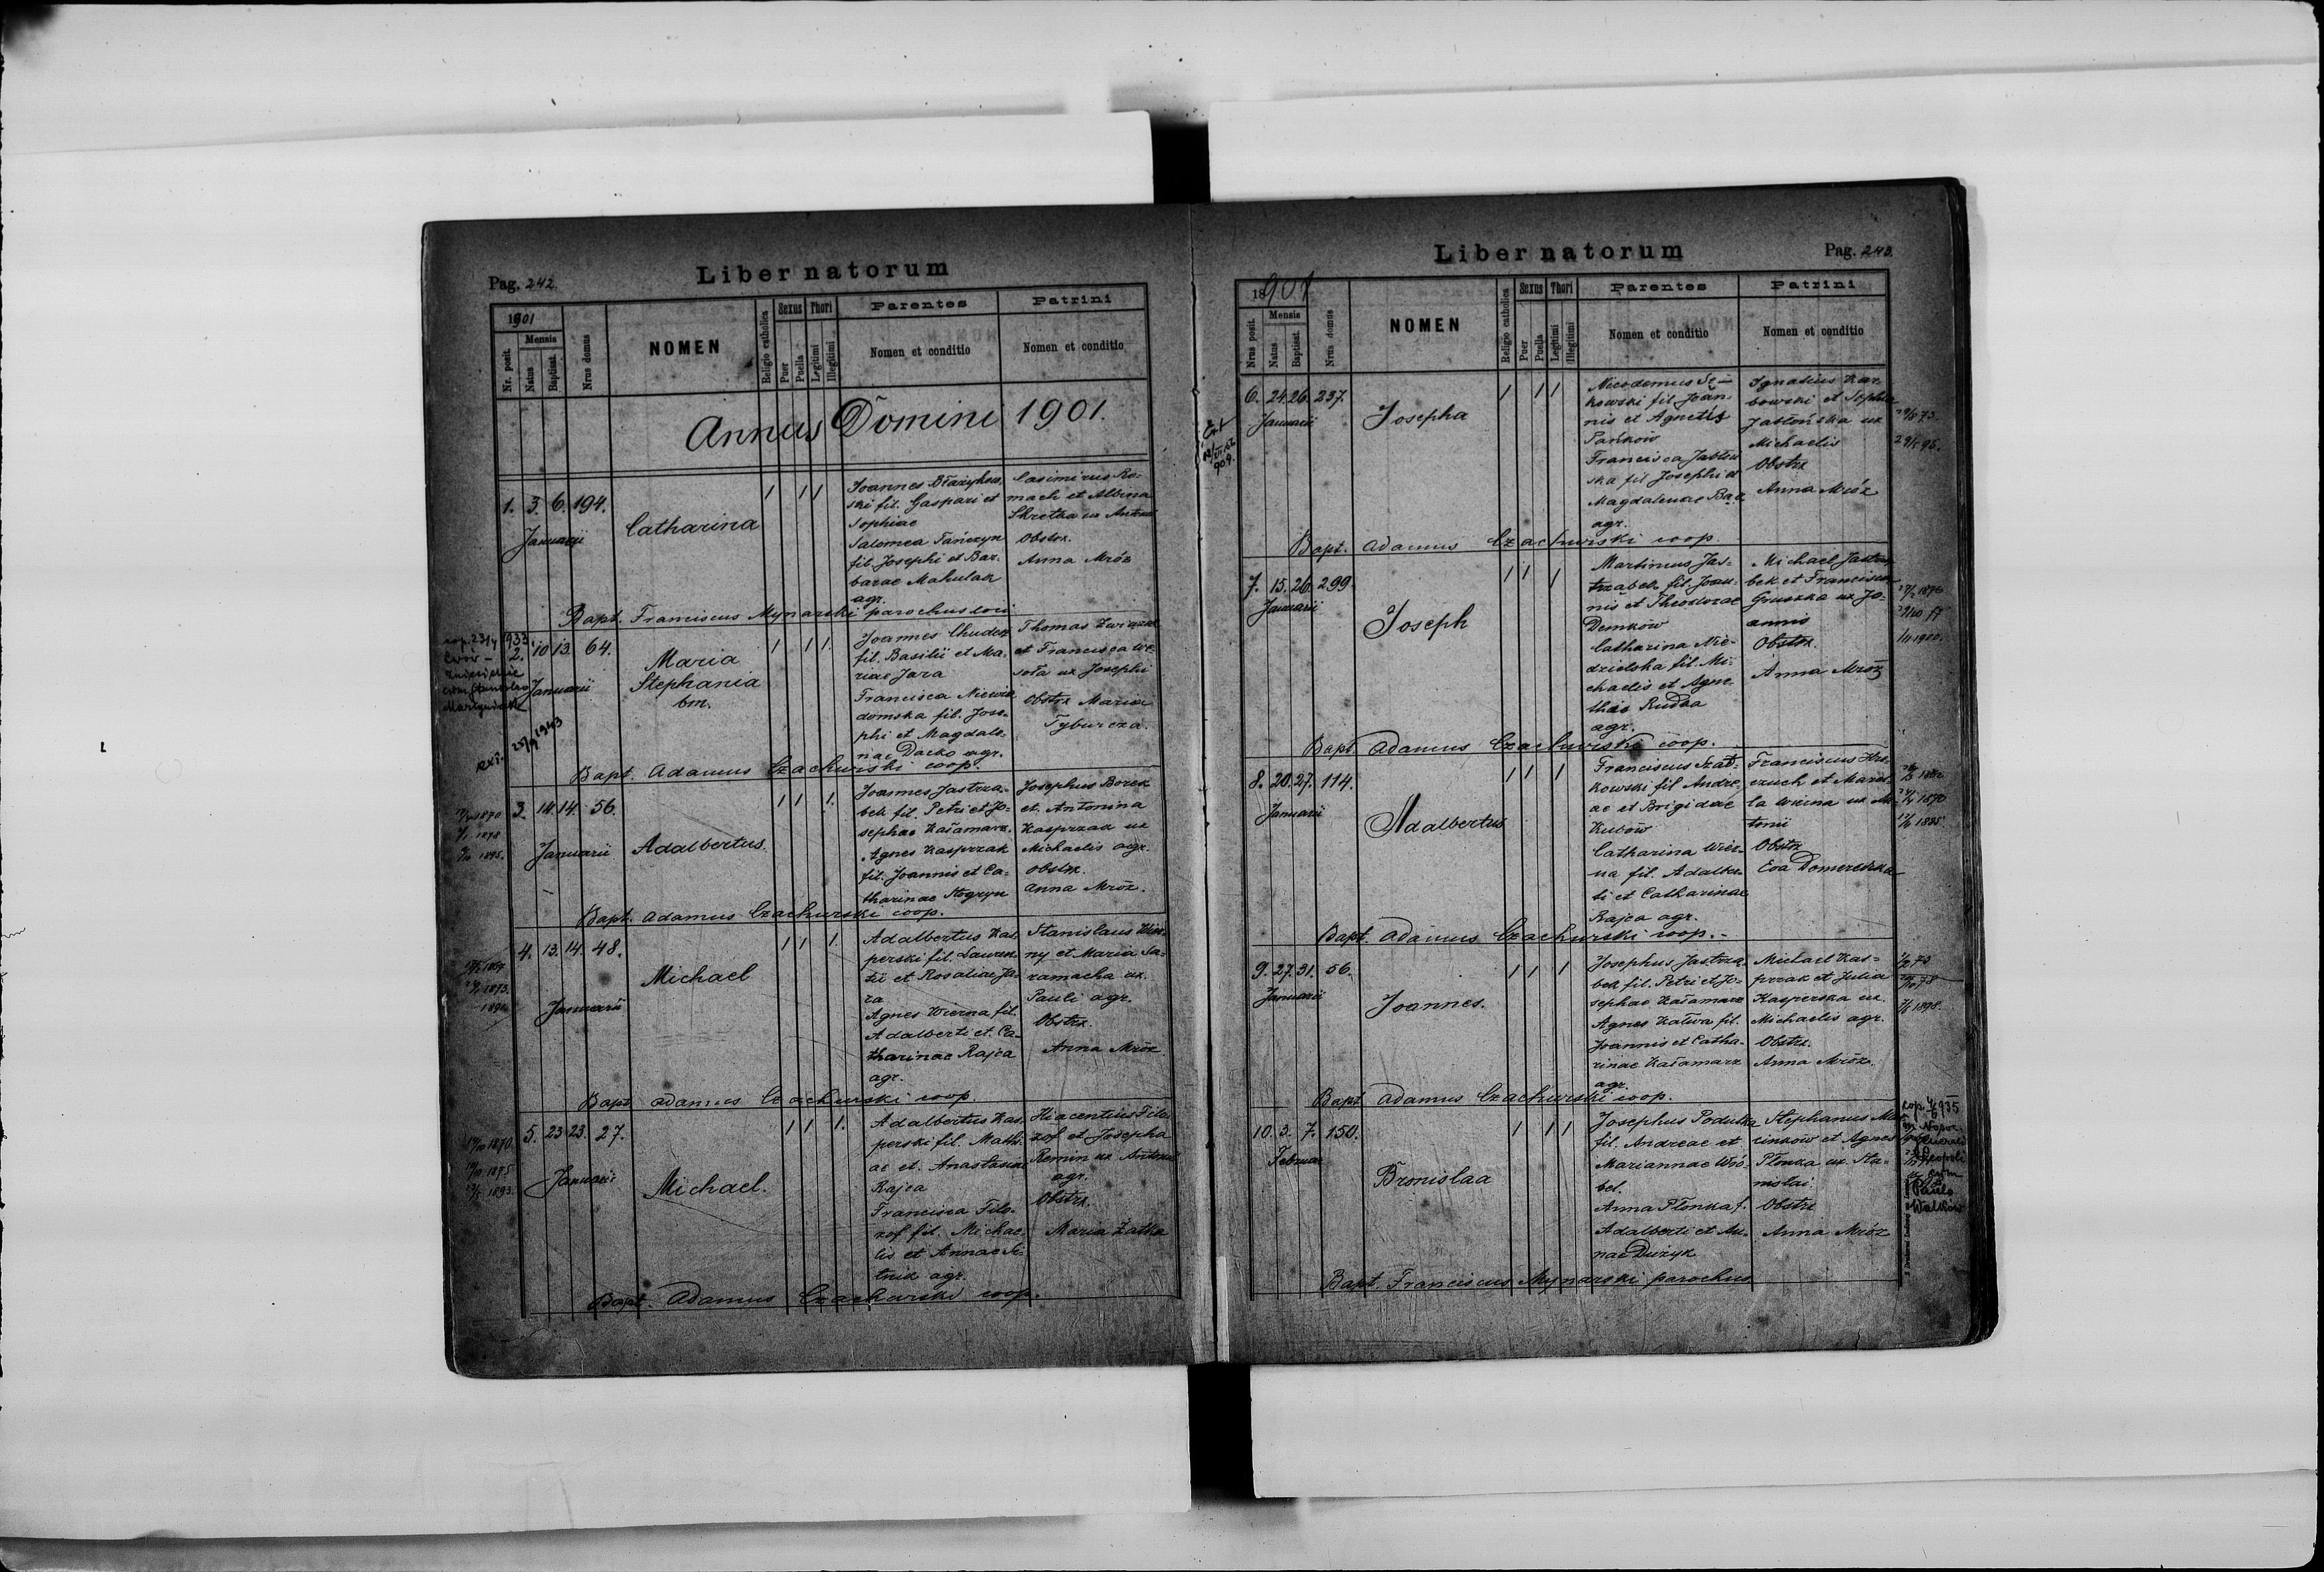 Pag. 242.
Liber natorum
1901
Mensis
Nr. posit.
Natus
Baptisat.
Nrus domus
NOMEN
Religio catholica
Sexus
Puer
Puella
Thori
Legitimi
Illegitimi
Parentes
Nomen et conditio
Patrini
Nomen et conditio
Annus Domini 1901.
1. 3. 6. 194.
Januarii
Catharina
1 1 1
Joannes Błażyków-
ski fil. Gaspari et
Sophiae
Salomea Tańczyn
fil. Josephi et Bar-
barae Mahulak
agr.
Casimirus Ro-
mach et Albina
Skretka ux Antonii
Obstx.
Anna Mróz
Bapt. Franciscus Mynarski parochus loci
cop. 23/4 1933
cum Stanislao
25/9 1943
2. 10 13. 64.
Januarii
Maria
Stephania
bm.
1 1 1.
Joannes Chudzik
fil. Basilii et Ma-
riae Jara
Francisca Niewia-
domska fil. Jose-
phi et Magdale-
nae Dacko agr.
Thomas Związek
et Francisca We-
soła ux Josephi
Obstx Maria
Tyburcza.
Bapt. Adamus Czachurski coop.
3. 14 14. 56.
Januarii
Adalbertus.
1 1 1.
Joannes Jastrza-
bek fil. Petri et Jo-
sephae Kałamarz.
Agnes Kasprzak
fil. Joannis et Ca-
tharinae Stogryn
Josephus Borek
et Antonina
Kasprzak ux
Michaelis agr.
obstx.
Anna Mróz.
Bapt. Adamus Czachurski coop.
4. 13. 14. 48.
Januarii
Michael
1 1 1.
Adalbertus Kas-
perski fil. Lauren-
tii et Rosaliae Ja-
ra
Agnes Wierna fil.
Adalberti et Ca-
tharinae Rajca
agr.
Stanislaus Wier-
ny et Maria Sa-
ramacha ux.
Pauli agr.
Obstx.
Anna Mróz.
Bapt Adamus Czachurski coop
5. 23 23. 27.
Januarii
Michael.
1 1 1.
Adalbertus Kas-
perski fil. Mathi-
ae et Anastasiae
Rajca
Francisca Filo-
zof fil. Michae-
lis et Annae Si-
tnik agr.
Hiacentus Filo-
zof et Josepha
Remin ux Antonii
agr.
Obstx.
Maria Żatka
Bapt. Adamus Czachurski coop.
Liber natorum
Pag. 243.
1901
Mensis
Nrus posit.
Natus
Baptisat.
Nrus domus
NOMEN
Religio catholica
Sexus
Puer
Puella
Thori
Legitimi
Illegitimi
Parentes
Nomen et conditio
Patrini
Nomen et conditio
6. 24. 26. 237.
Januarii
Josepha
1 1 1
Nicodemus
kowski fil Joan-
nis et Agnetis
Pańków
Francisca Jabłoń-
ska fil Josephi et
Magdalenae Bąk
agr.
Ignatius Kar-
bowski et Sophia
Jabłońska ux
Michaelis
Obstx
Anna Mróz
Bapt. Adamus Czachurski coop
7. 15. 26. 299
Januarii
Joseph
1 1 1
Martinus Jas-
trzabek fil. Joan-
nis et Theodorae
Demków
Catharina Nie-
dzielska fil. Mi-
chaelis et Agne-
thae Rudka
agr.
Michael Jastrza-
bek et Francisca
Gruszka ux Jo-
annis
Obstx.
Anna Mróz
Bapt Adamus Czachurski coop.
8. 20. 27. 114.
Januarii
Adalbertus
1 1 1
Franciscus Szat-
kowski fil Andre-
ae et Brigidae
Kubów
Catharina Wier-
na fil. Adalber-
ti et Catharinae
Rajca agr.
Franciscus
czuch et Marce-
la Wierna ux An-
tonii
Obstx
Eva Domereska
Bapt. Adamus Czachurski coop.-
9. 27. 31. 56.
Januarii
Joannes.
1 1 1
Josephus Jastrza-
bek fil. Petri et Jo-
sephae Kałamarz
Agnes Kaliva fil.
Joannis et Catha-
rinae Kałamarz
agr.
Michael Kas-
przak et Julia
Kasperska ux.
Michaelis agr.
Obstx.
Anna Mróz.
Bapt Adamus Czachurski coop.
10. 3. 7. 150.
Februar
Bronislaa
1 1 1
Josephus Poduska
fil. Andreae et
Mariannae Wró-
bel.
Anna Płonka f.
Adalberti et An-
nae Dużyk
Stephanus Mar-
cinków et Agnes
Płonka ux Sta-
nislai.
Obstx.
Anna Mróz
Leopoli
cum
Paulo
Bapt. Franciscus Mynarski parochus